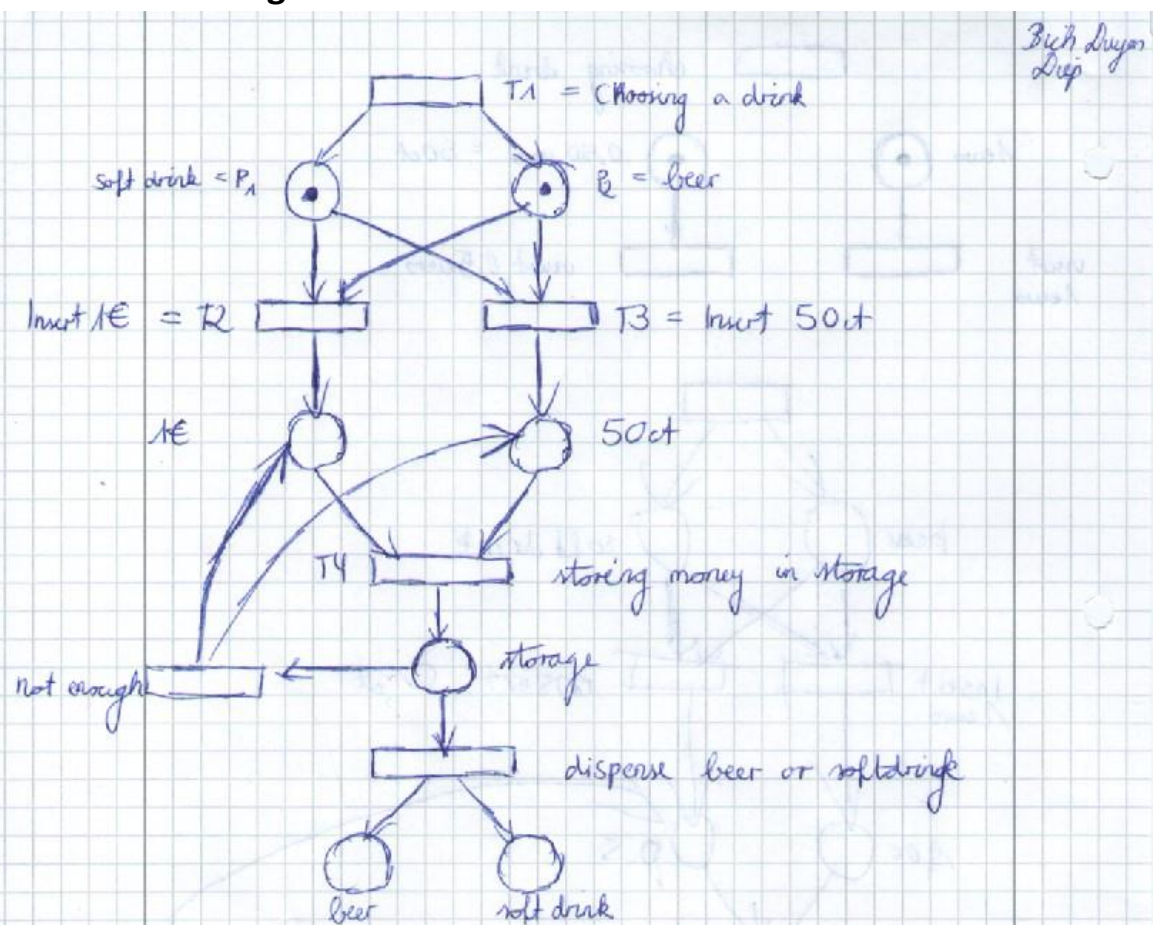 Bich Duyen
Diep
T1 = Choosing a drink
soft drink = P1
P2 = beer
Insert 1€ = T2
T3 = Insert 50ct
1€
50ct
T4
storing money in storage
storage
not enough
dispense beer or softdrink
beer
soft drink